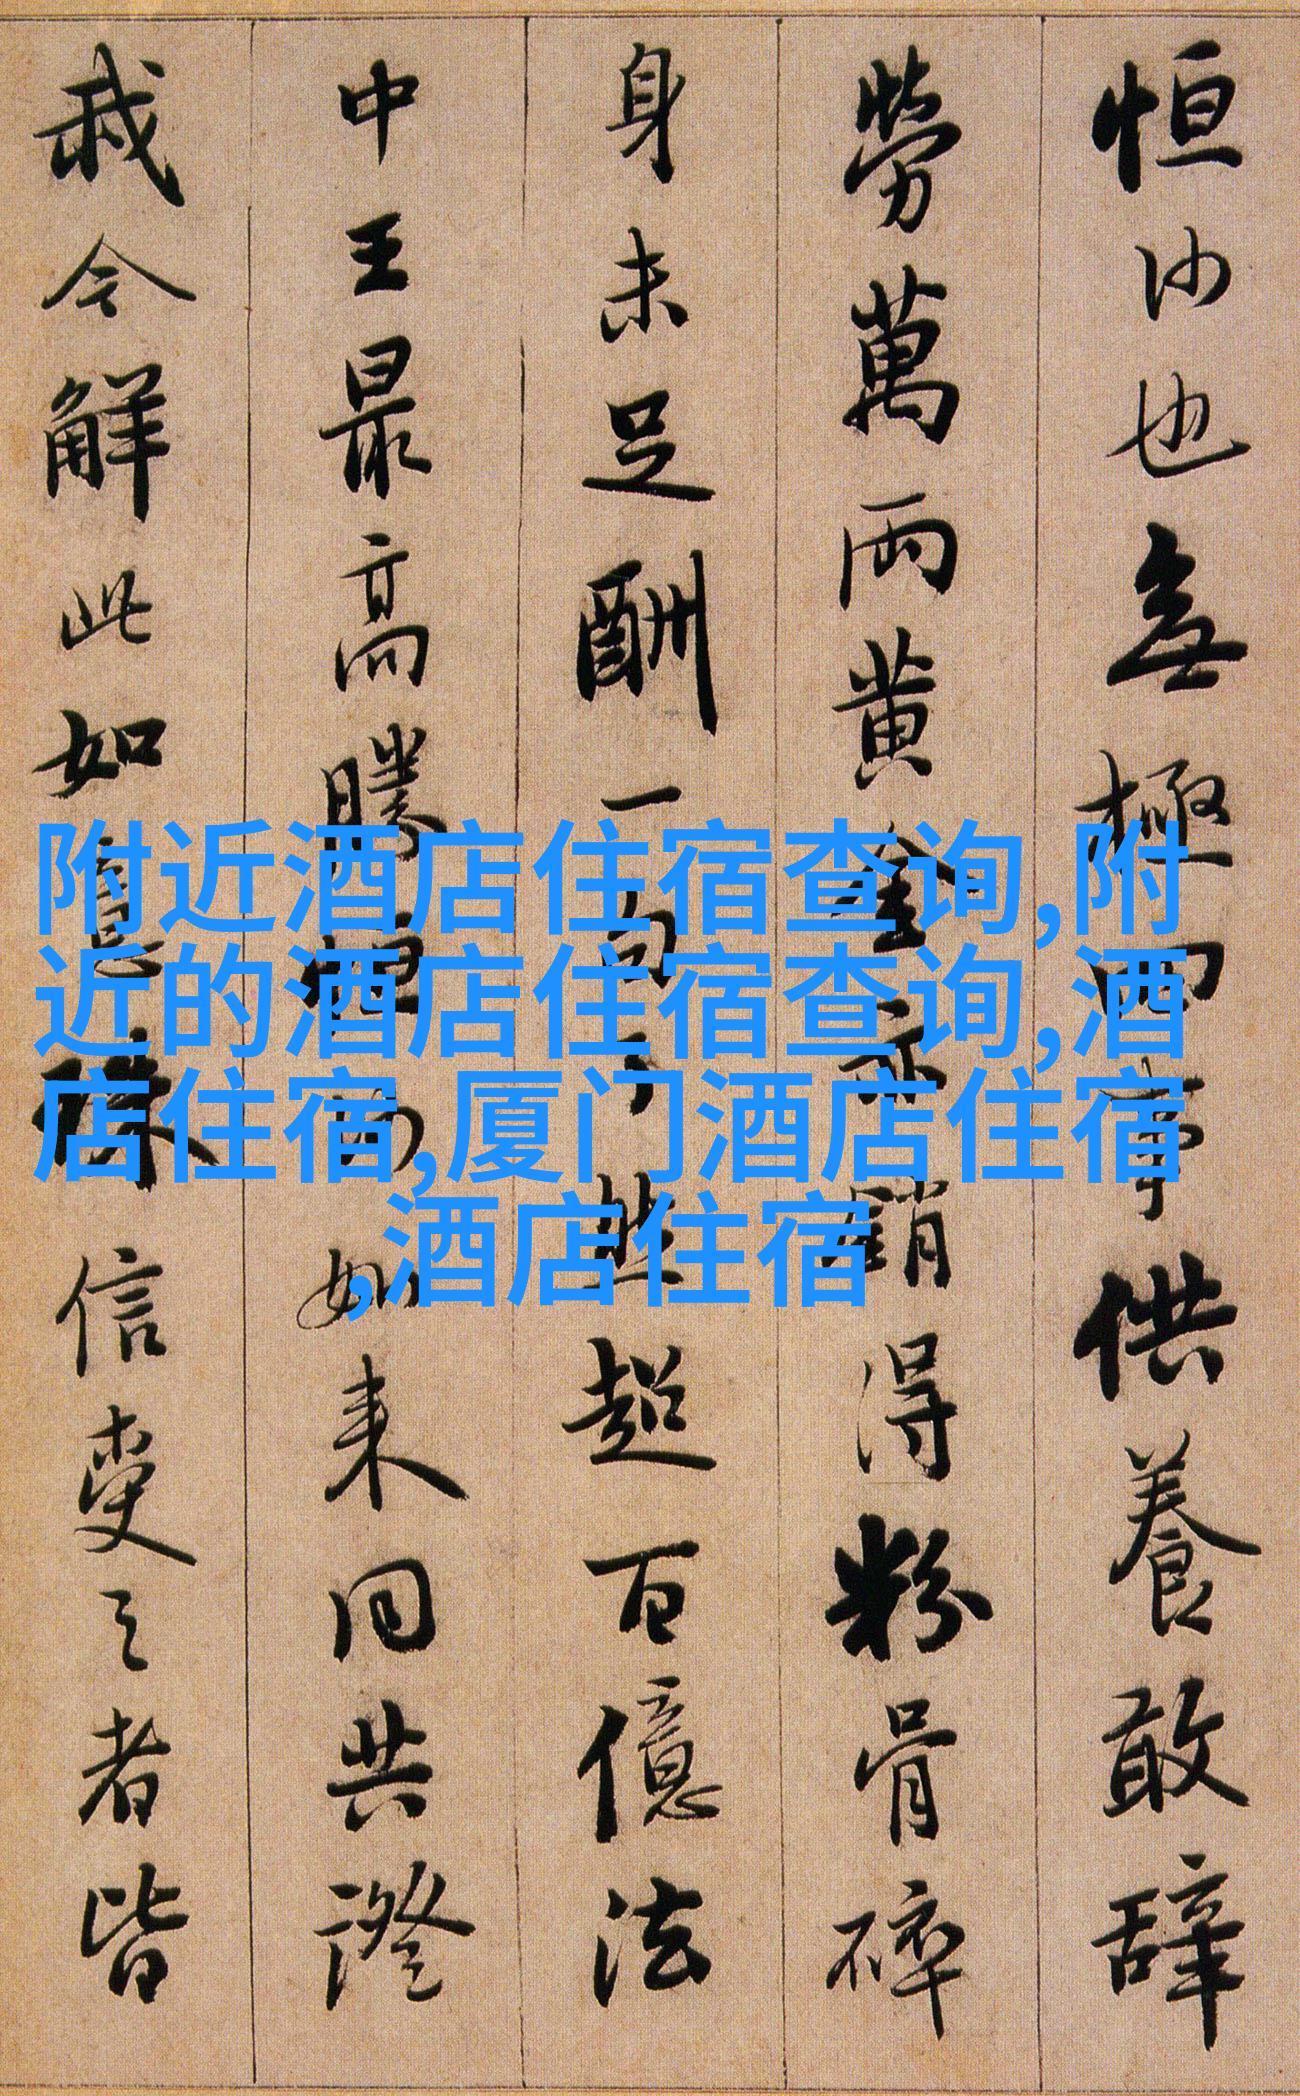 恒沙也無極四事供養敢辭
勞萬兩黄金亦銷得粉骨碎
身未足酬一句了然超百億法
中王最高勝恒沙如来同共證
我今解此如意珠信受之者皆
附近酒店住宿查询,附
近的酒店住宿查询,酒
店住宿,厦门酒店住宿
,酒店住宿